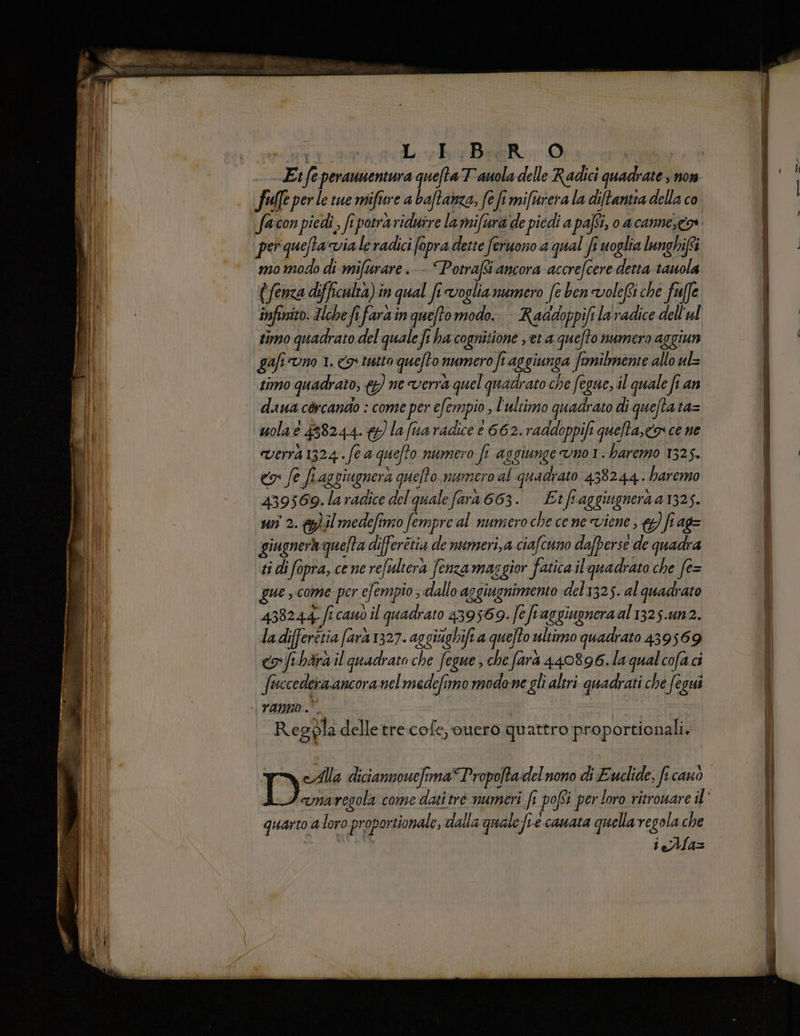 L I B R O
Et ſe perauuentura queſta Tauola delle Radici quadrate, non
fuſſe per le tue miſure a baſtanza, ſe ſi miſurera la diſtantia della co
ſa con piedi, ſi potra ridurre la miſura de piedi a paſſi, o a canne, &
per queſta via le radici ſopra dette ſeruono a qual ſi uoglia lunghiſſi
mo modo di miſurare. Potraſſi ancora accreſcere detta tauola
(ſenza difficulta) in qual ſi voglia numero ſe ben voleſſi che fuſſe
infinito. Ilche ſi fara in queſto modo. Raddoppiſi la radice dell'ul
timo quadrato del quale ſi ha cognitione, et a queſto numero aggiun
gaſi vno 1. & tutto queſto numero ſi aggiunga ſimilmente allo ul=
timo quadrato, & ne verra quel quadrato che ſegue, il quale ſi an
daua cercando : come per eſempio, l'ultimo quadrato di queſta ta=
uola e 438244. & la ſua radice e 662. raddoppiſi queſta, & ce ne
verra 1324. ſe a queſto numero ſi aggiunge vno 1. haremo 1325.
& ſe ſi aggiugnera queſto numero al quadrato 438244. haremo
439569. la radice del quale ſara 663. Et ſi aggiugnera a 1325.
un 2. & il medeſimo ſempre al numero che ce ne viene, & ſi ag=
giugnera queſta differētia de numeri, a ciaſcuno daſperse de quadra
ti di ſopra, ce ne reſultera ſenza maggior fatica il quadrato che ſe=
gue, come per eſempio, dallo aggiugnimento del 1325. al quadrato
438244. ſi cauò il quadrato 439569. ſe ſi aggiugnera al 1325. un 2.
la differētia ſara 1327. aggiughiſi a queſto ultimo quadrato 439569
& ſi harà il quadrato che ſegue, che ſarà 440896. la qual coſa ci
ſuccedera ancora nel medeſimo modo ne gli altri quadrati che ſegui
ranno.
Regola delle tre coſe, ouero quattro proportionali.
DAlla diciannoueſima Propoſta del nono di Euclide, ſi cauò
vna regola come dati tre numeri ſi poſſi per loro ritrouare il
quarto a loro proportionale, dalla quale ſi è cauata quella regola che
i Ma=